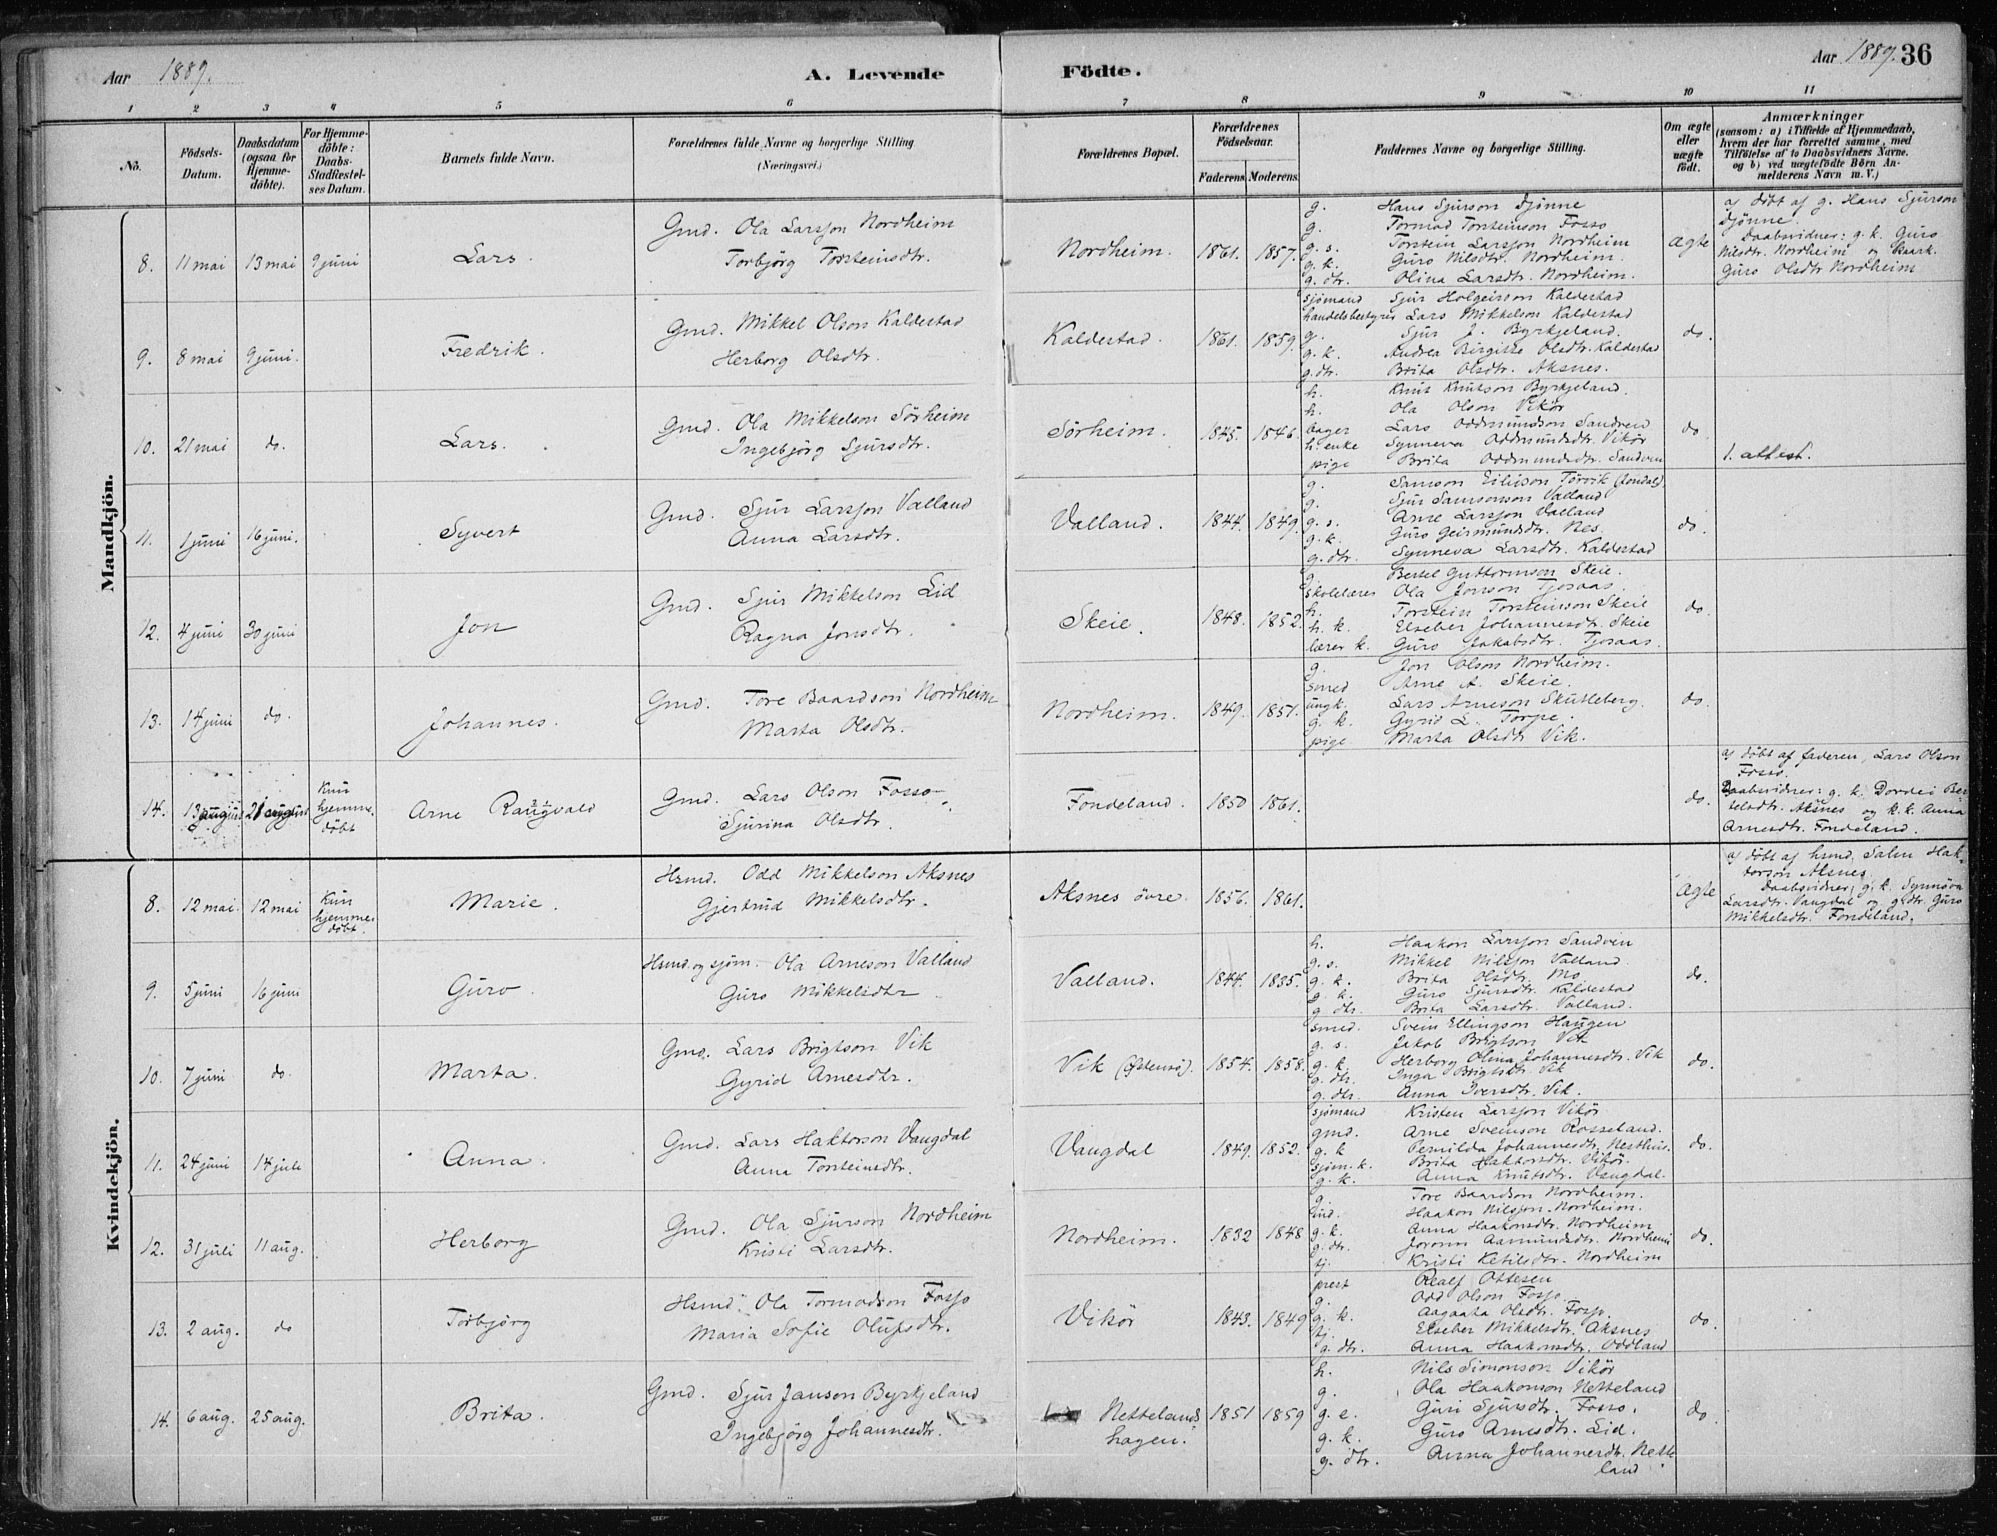 Aar 1889.
A. Levende Födte.
Aar 1889. 36
1 2 3 4 5 6 7 8 9 10 11
No.
Födsels-
Datum.
Daabsdatum
(ogsaa for
Hjemme-
döbte).
For Hjemme-
döbte:
Daabs-
Stadfæstel-
ses Datum.
Barnets fulde Navn.
Forældrenes fulde Navne og borgerlige Stilling
(Næringsvei.)
Forældrenes Bopæl.
Forældrenes
Födselsaar.
Faderens. Moderens.
Faddernes Navne og borgerlige Stilling.
Om ægte
eller
uægte
födt.
Anmærkninger
(saasom: a) i Tilfælde af Hjemmedaab,
hvem der har forrettet samme, med
Tilföielse af to Daabsvidners Navne.
og b) ved uægtefödte Börn An-
melderens Navn m. V.)
Mandkjön.
8. 11 mai 13 mai 9 juni Lars.
Gmd. Ola Larsson Nordheim
Torbjörg Torsteinsdtr.
Nordheim. 1861. 1857.
g. Hans Sjurson Djönne
g. Tormod Torsteinson Fosso
g. s. Torstein Larsson Nordheim
g. k. Guro Nilsdtr. Nordheim.
g. dtr. Olina Larsdtr. Nordheim.
Ægte
a) döbt af g. Hans Sjurson
Djönne.
Daabsvidner: g. k. Guro
Nilsdtr. Nordheim og
Guro Olsdtr Nordheim
9. 8 mai 9 juni. Fredrik.
Gmd. Mikkel Olson Kaldestad
Herborg Olsdtr.
Kaldestad. 1861. 1859.
sjömand Sjur Holgeirson Kaldestad
handelsbestyrer Lars Mikkelson Kaldestad
g. Sjur J. Byrkjeland.
g. k. Andrea Birgitte Olsdtr. Kaldestad
g. dtr. Brita Olsdtr. Aksnes.
do.
10. 21 mai do. Lars.
Gmd. Ola Mikkelson Sörheim
Ingebjörg Sjursdtr.
Sörheim. 1845. 1846.
h. Knut Knutson Byrkjeland.
h. Ola Olson Vikör
bager Lars Oddmundson Sandven
h. enke Synneva Oddmundsdtr. Vikör
pige Brita Oddmundsdtr. Sandven
do
1. attest.
11. 1 juni 16 juni. Syvert
Gmd. Sjur Larsson Valland
Anna Larsdtr.
Valland. 1844. 1849.
g. Samson Eilivson Törvik (Jondal).
g. Sjur Samsonson Valland
g. s. Arne Larsson Valland
g. k. Guro Geirmundsdtr. Nes.
g. dtr. Synneva Larsdtr. Kaldestad
do.
12. 4 juni 30 juni Jon
Gmd. Sjur Mikkelson Lid
Ragna Jonsdtr.
Skeie. 1848. 1852.
g. Bertel Guttormson Skeie.
skolelærer Ola Jonson Tjosaas.
h. Torstein Torsteinsson Skeie
h. k. Elseber Johannesdtr. Skeie
lærer k. Guro Jakobsdtr. Tjosaas.
do.
13. 14 juni do. Johannes.
Gmd. Tore Baardson Nordheim
Marta Olsdtr.
Nordheim. 1849. 1851.
g. Jon Olson Nordheim.
smed Arne A. Skeie.
ungk. Lars Arneson Skutleberg.
g. k. Gyrid L. Torpe.
pige Marta Olsdtr Vik.
do.
14. 13 august 21 august Kun
hjemme-
döbt
Arne Raugvald
Gmd. Lars Olson Fosso
Sjurina Olsdtr.
Fondeland. 1850 1861.
do.
a) döbt af faderen, Lars Olson
Fosso.
Daabsvidner: g. k. Dordei Ber-
telsdtr. Aksnes og k. k. Anna
Arnesdtr. Fondeland.
Kvindekjön.
8. 12 mai. 12 mai Kun
hjemme-
döbt.
Marie.
Hsmd. Odd Mikkelson Aksnes
Gjertrud Mikkelsdtr.
Aksnes övre. 1856. 1861.
Ægte
a) döbt af hsmd. Salm Hak-
torson Aksnes
Daabsvidner: g. k. Synnöva
Larsdtr. Vangdal og g. dtr. Guro
Mikkelsdtr. Fondeland.
9. 5 juni 16 juni Guro
Hsmd. og sjöm. Ola Arneson Valland
Guro Mikkelsdtr
Valland. 1844. 1835.
h. Haakon Larsson Sandvin
g. s. Mikkel Nilsson Valland.
g. k. Brita Olsdtr. Mo
g. k. Guro Sjursdtr. Kaldestad
g. dtr. Brita Larsdtr. Valland.
do.
10. 7 juni do. Marta.
Gmd. Lars Brigtson Vik
Gyrid Arnesdtr.
Vik (Östensö). 1854. 1858.
smed. Svein Ellingson Haugen
g. s. Jakob Brigtson Vik
g. k. Herborg Olina Johannesdtr. Vik
g. dtr. Inga Brigtsdtr. Vik
g. dtr. Anna Iversdtr. Vik.
do.
11. 24 juni 14 juli Anna.
Gmd. Lars Haktorson Vangdal
Anna Torsteinsdtr.
Vangdal 1849. 1852.
sjömand Kristen Larsson Vikör
gmd. Arne Svenson Rosseland.
g. k Pernilda Johannesdtr. Nesthus.
sjöm. k. Brita Haktorsdtr. Vikör.
g. k. Anna Knutsdtr. Vangdal.
do.
12. 31 juli 11 aug. Herborg
Gmd. Ola Sjurson Nordheim
Kristi Larsdtr.
Nordheim. 1832 1848
g. Tore Baardson Nordheim.
ind. Haakon Nilsson. Nordheim.
g. k. Anna Haakonsdtr. Nordheim
g. dtr. Joronn Aamundsdtr. Nordheim
tj. Kristi Ketilsdtr. Nordheim
do.
13. 2 aug. do Torbjörg
Hsmd. Ola Tormodson Fosso
Maria Sofie Olufsdtr.
Vikör 1843. 1849
prest Realf Ottesen
g. Odd Olson Fosso.
g. k. Aagaata Olsdtr. Fosso
tj. Elseber Mikkelsdtr. Aksnes
g. dtr. Anna Haakonsdtr. Oddland
do.
14. 6 aug. 25 aug. Brita.
Gmd. Sjur Janson Byrkjeland
Ingebjörg Johannesdtr.
Nettelands
hagen. 1851 1859
h. Nils Simonson Vikör
g. Ola Haakonson Netteland
g. e. Guri Sjursdtr. Fosso.
g. k. Guro Arnesdtr. Lid.
g. dtr. Anna Johannesdtr. Nette-
land
do.